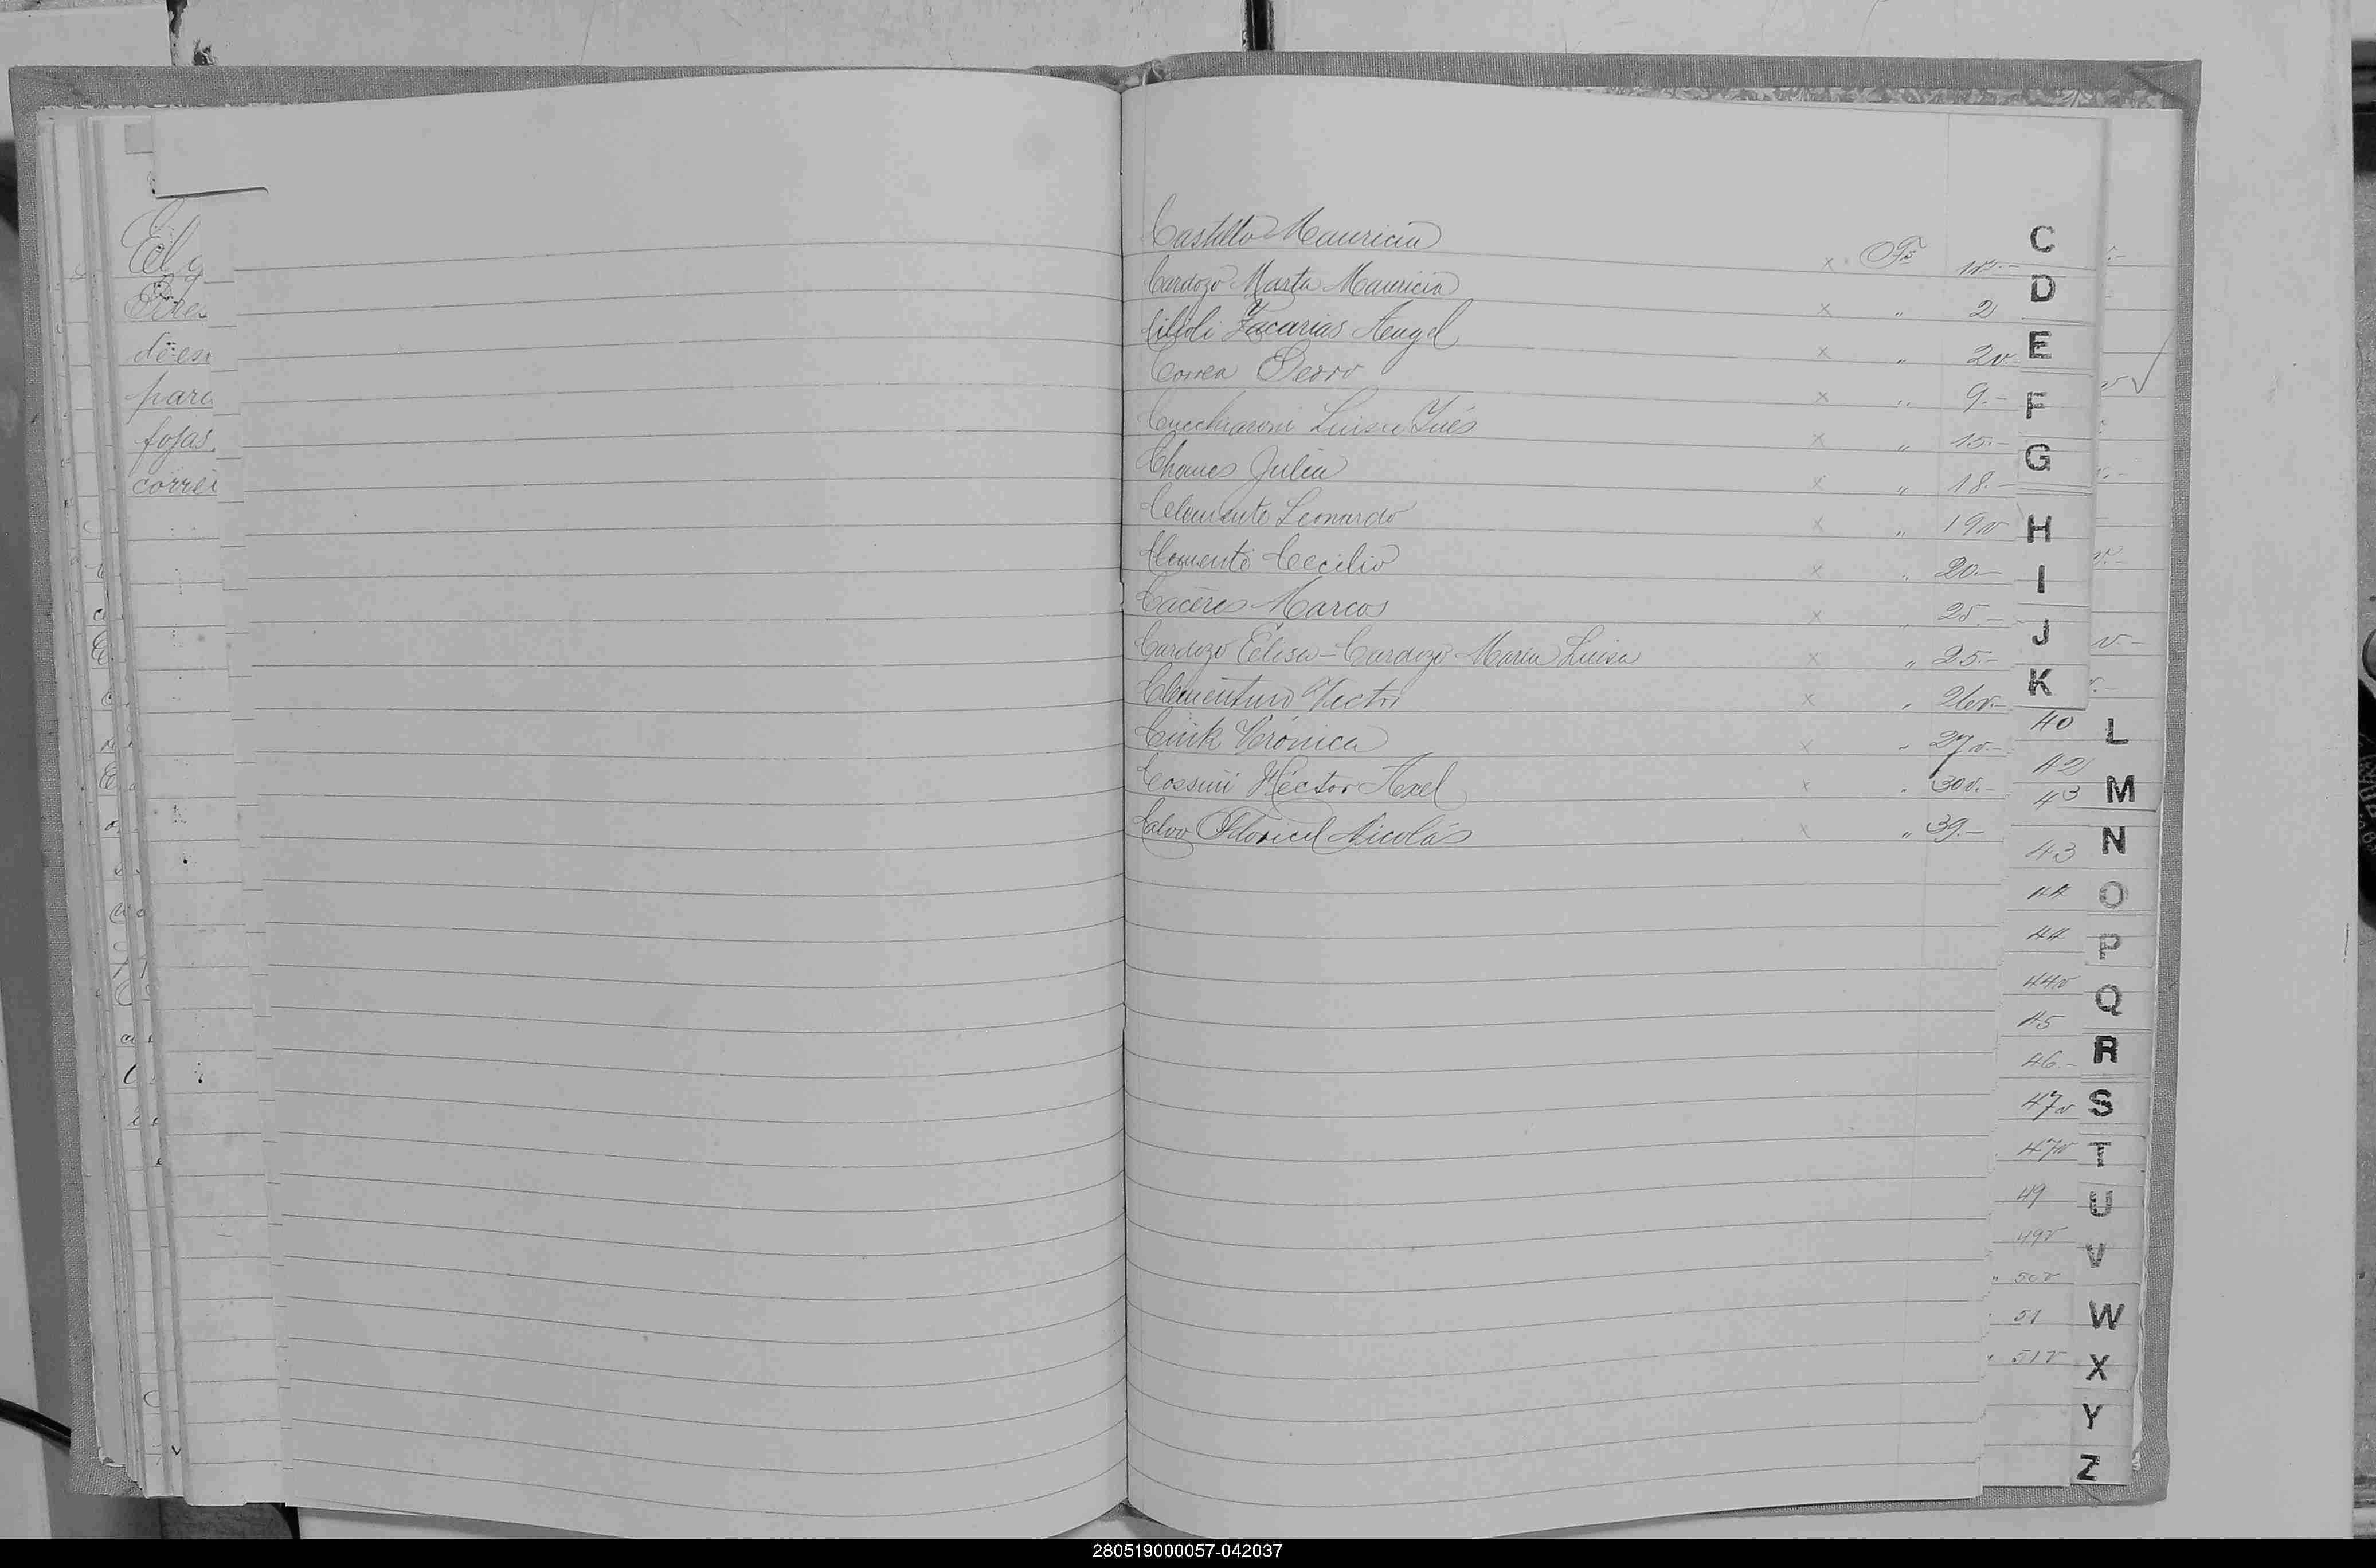 El
para
fojas
corre
Castillo Mauricia x Fo 1v.- C
Cardozo Marta Mauricia x " 2 D
Zacarias Angel x " 2v E
Correa Pedro x " 9.- F
Cucchiaroni Luisa Inés x " 15.- G
Chaves Julia x " 18.-
Clemente Leonardo x " 19v H
Clemente Cecilio x " 20.- I
Cáceres Marcos x " 25.- J
Cardozo Elisa - Cardozo María Luisa x " 25.-
Clementino Victor x " 26v.- K
Cink Verónica x " 27v.- 40 L
Cossini Héctor Axel x " 30v.- 42 M
43
Calvo Nicolás x " 39.- 43 N
44 O
44 P
44v Q
45
46.- R
47v S
47v T
49 U
49v V
" 50v
51 W
" 51v X
Y
Z
280519000057-042037